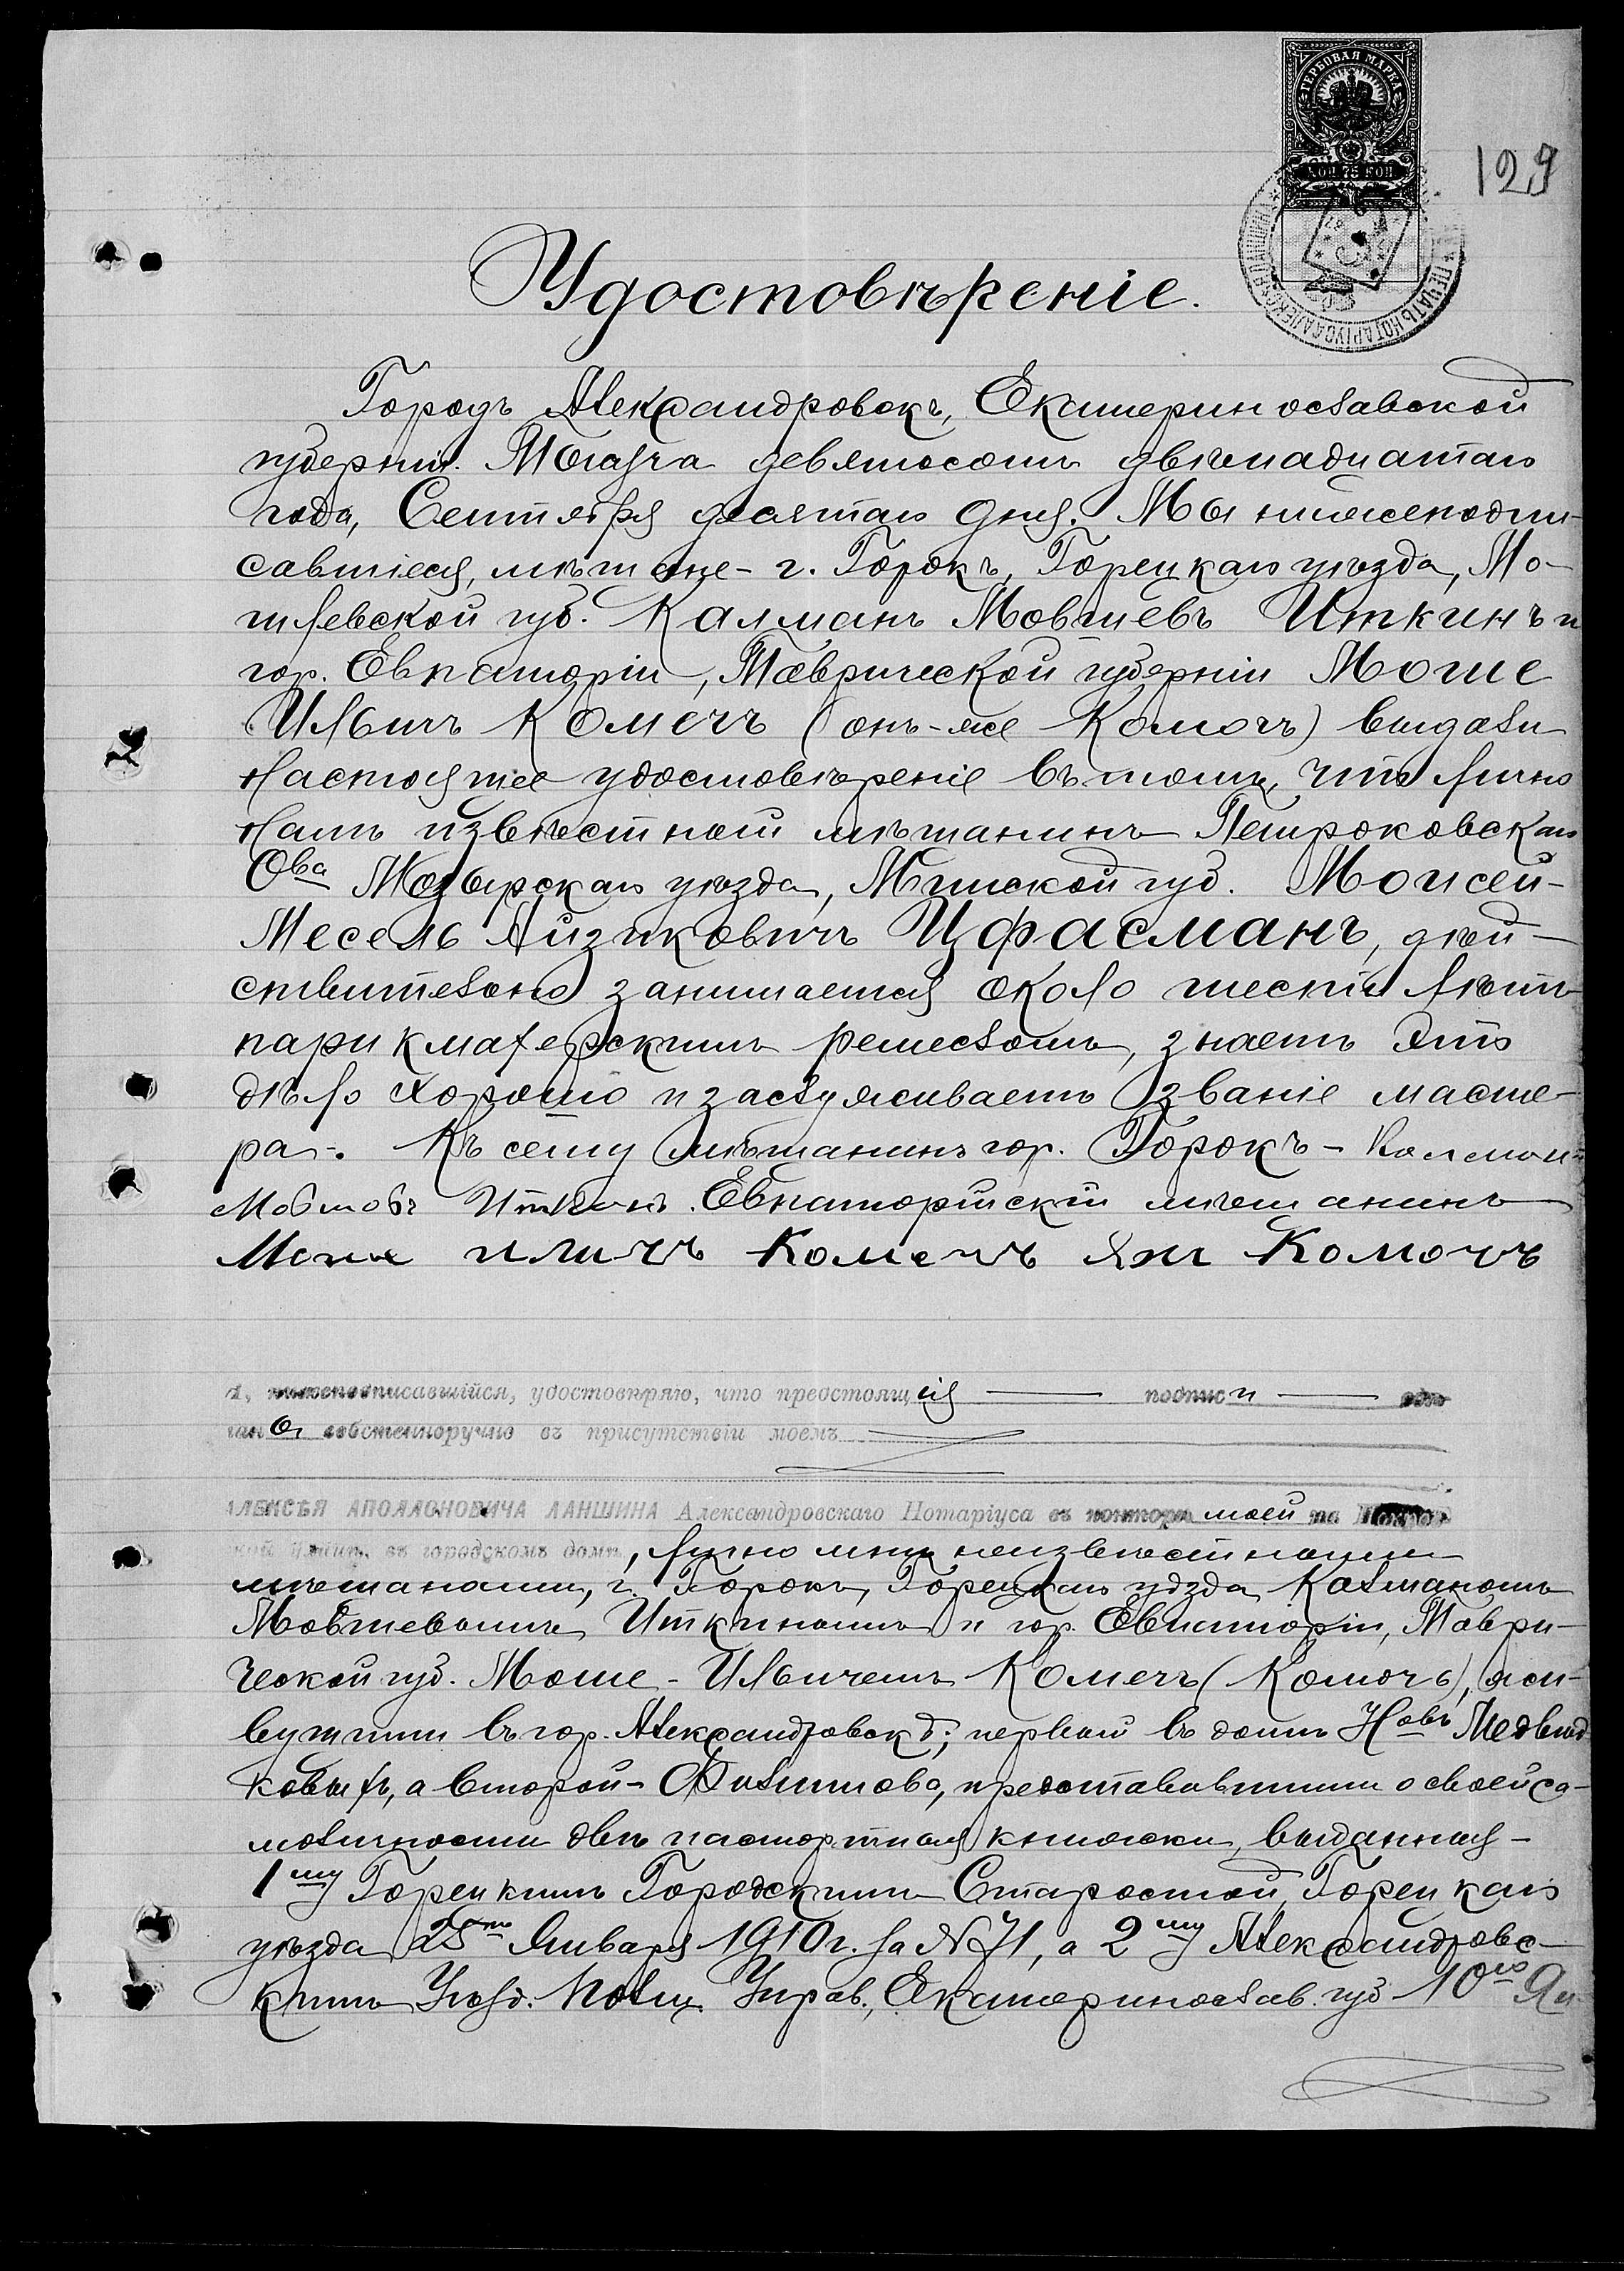 ГЕРБОВАЯ МАРКА
КОП 75 КОП
129
ПЕЧАТЬ НОТАРІУСА
Удостовѣреніе.
Городъ Александровскъ, Екатеринославской
губерніи. Тысяча девятьсотъ двѣнадцатаго
года, Сентября десятаго дня. Мы нижеподпи-
савшіеся, мѣщане - г. Горокъ, Горецкаго уѣзда, Мо-
гилевской губ. Калманъ Мовшевъ Иткинъ и
гор. Евпаторіи, Таврической губерніи Моше
Ильичъ Комечъ (онъ-же Комочъ) выдали
настоящее удостовѣреніе въ томъ, что лично
намъ извѣстный мѣщанинъ Петроковскаго
Ова Мозырскаго уѣзда, Минской губ. Моисей-
Месель Айзиковичъ Цфасманъ, дѣй-
ствительно занимается около шести лѣтъ
парикмахерскимъ ремесломъ, знаетъ это
дѣло хорошо и заслуживаетъ званіе масте-
ра. Къ сему мѣщанинъ гор. Горокъ - Калман
Мовшовъ Иткинъ. Евпаторійскій мѣщанинъ
Моше иличъ Комечъ яжи Комочъ
Я, нижеподписавшійся, удостовѣряю, что предстоящія подписи сдѣ
ланы собственноручно въ присутствіи моемъ
АЛЕКСѢЯ АПОЛЛОНОВИЧА ЛАНШИНА Александровскаго Нотаріуса въ конторѣ моей на
ской улицѣ, въ городскомъ домѣ, лично мнѣ неизвѣстными
мѣщанами, г. Горокъ, Горецкаго уѣзда Калманомъ
Мовшевымъ Иткинымъ и гор. Евпаторіи, Таври-
ческой губ. Моше - Ильичемъ Комечъ (Комочъ), жи-
вущими въ гор. Александровскѣ; первый въ домѣ Новъ Медвѣд
ковыхъ, а второй - Филиппова, предоставившими о своей са-
моличности двѣ паспортныя книжки, выданныя -
1му Горецкимъ Городскимъ Старостой, Горецкаго
уѣзда 25го Января 1910 г. за № 71, а 2му Александровс-
кимъ Уѣзд. Полиц. Управ., Екатеринослав. губ 10го Ян-